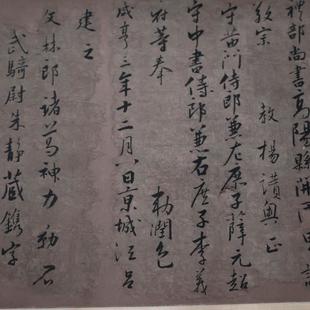 禮部尚書高陽縣開國男許
敬宗
守黄門侍郎兼左庶子薛元超
守中書侍郎兼右庶子李義
府等奉 勅潤色
咸亨三年十二月八日京城法呂
建立
文林郎諸葛神力勒石
武騎尉朱静藏鐫字